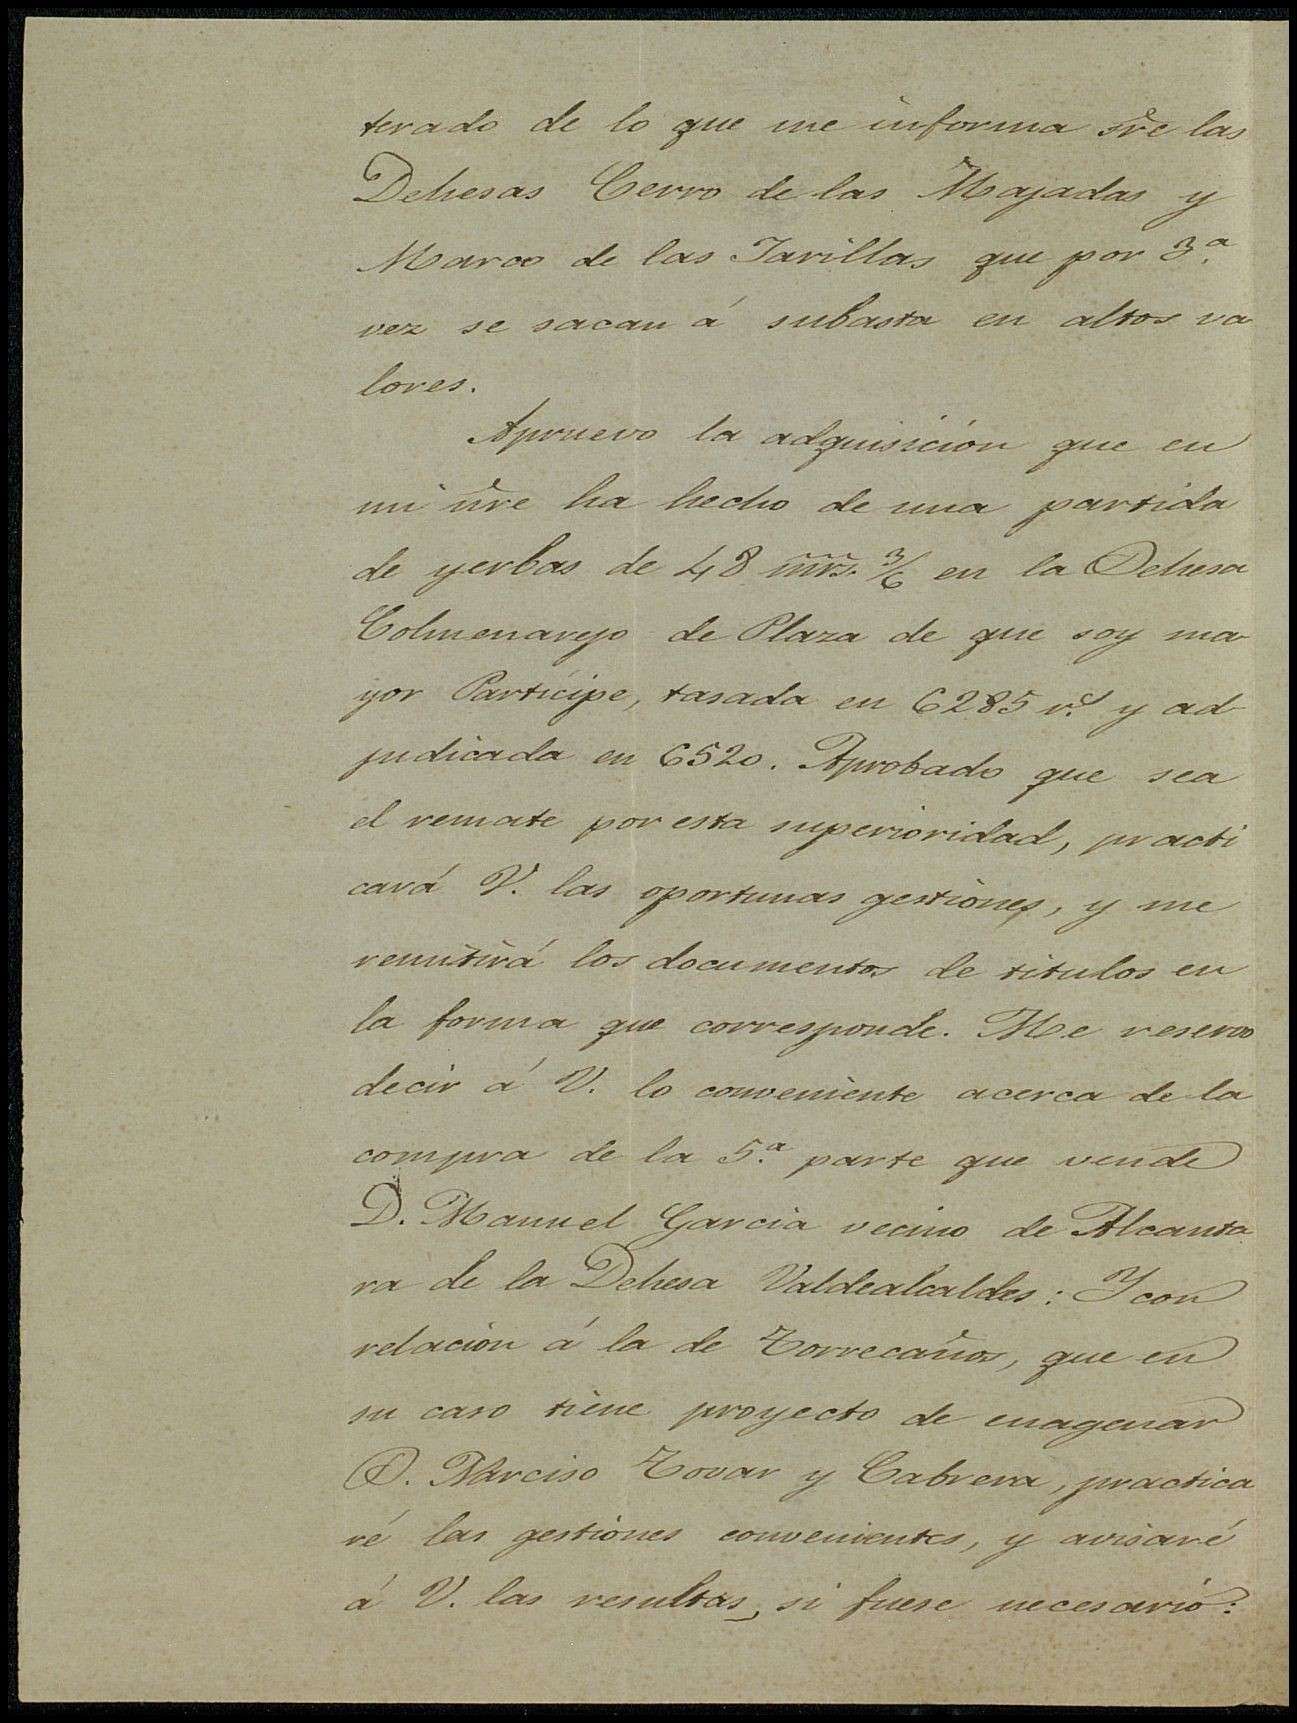 terado de lo que me informa s̃re las
Dehesas Cerro de las Majadas y
Marco de las Jarillas que por 3.ª
vez se sacan á subasta en altos va
lores.
Apruevo la adquisición que en
mi ñre ha hecho de una partida
de yerbas de 48 m̃rs. 3/6 en la Dehesa
Colmenarejo de Plaza de que soy ma-
yor Partícipe, tasada en 6285 r.s y ad-
judicada en 6520. Aprobado que sea
el remate por esta superioridad, practi
cará V. las oportunas gestiones, y me
remitirá los documentos de titulos en
la forma que corresponde. Me reservo
decir á V. lo conveniente acerca de la
compra de la 5.ª parte que vende
D. Manuel Garcia vecino de Alcanta
ra de la Dehesa Valdealcaldes: Y con
relación á la de Torrecaños, que en
su caso tiene proyecto de enagenar
D. Narciso Tovar y Cabrera, practica
ré las gestiones convenientes, y avisaré
á V. las resultas, si fuese necesario: